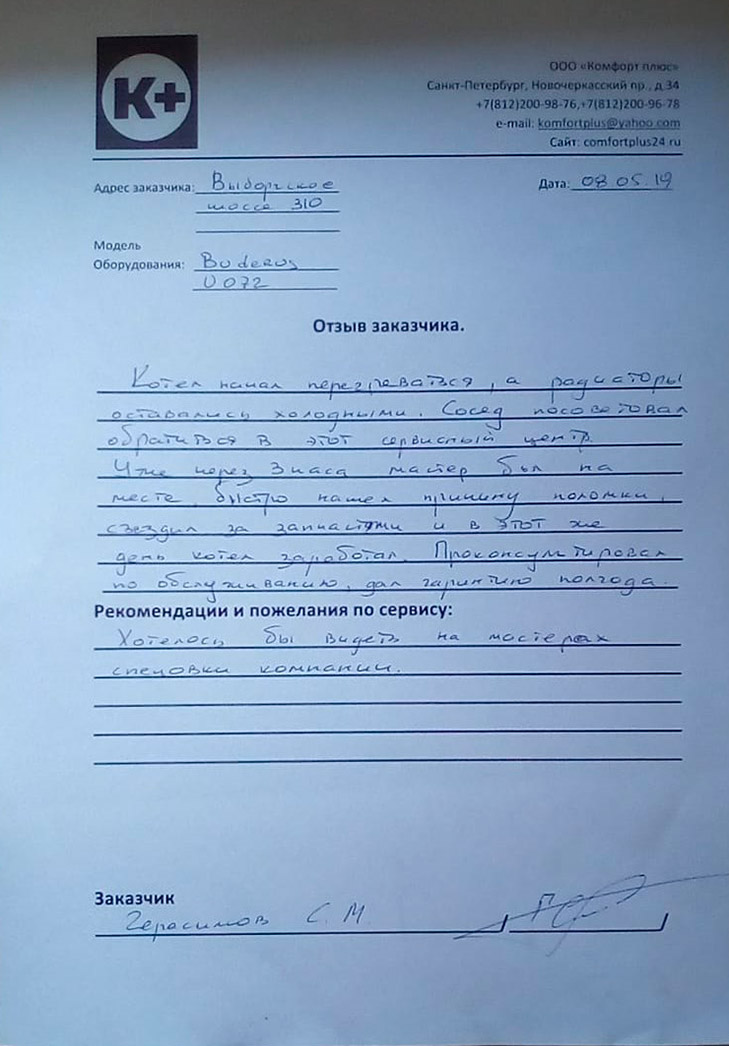 K+
ООО «Комфорт плюс»
Санкт-Петербург, Новочеркасский пр., д.34
+7(812)200-98-76,+7(812)200-96-78
e-mail: komfortplus@yahoo.com
Сайт: comfortplus24 ru
Адрес заказчика: Выборгское
шоссе 310
Дата: 08 05.19
Модель
Оборудования: Buderus
U072
Отзыв заказчика.
Котел начал перегреваться, а радиаторы
оставались холодными. Сосед посоветовал
обратиться в этот сервисный центр.
Уже через 3 часа мастер был на
месте, быстро нашел причину поломки,
съездил за запчастями и в этот же
день котел заработал. Проконсультировал
по обслуживанию, дал гарантию полгода.
Рекомендации и пожелания по сервису:
Хотелось бы видеть на мастерах
спецовки компании.
Заказчик
Герасимов С. М.